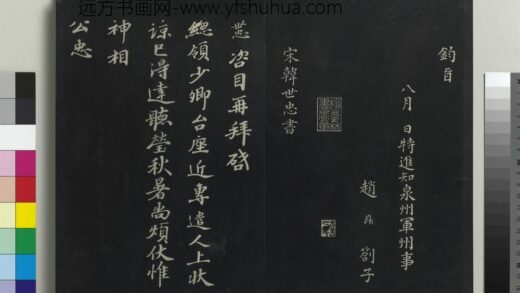 远方书画网-www.yfshuhua.com
鈞旨
八月 日特進知泉州軍州事
趙鼎劄子
宋韓世忠書
咨目再拜啓
總領少卿台座近專遣人上狀
諒已得達聽瑩秋暑尚煩伏惟
神相
公忠